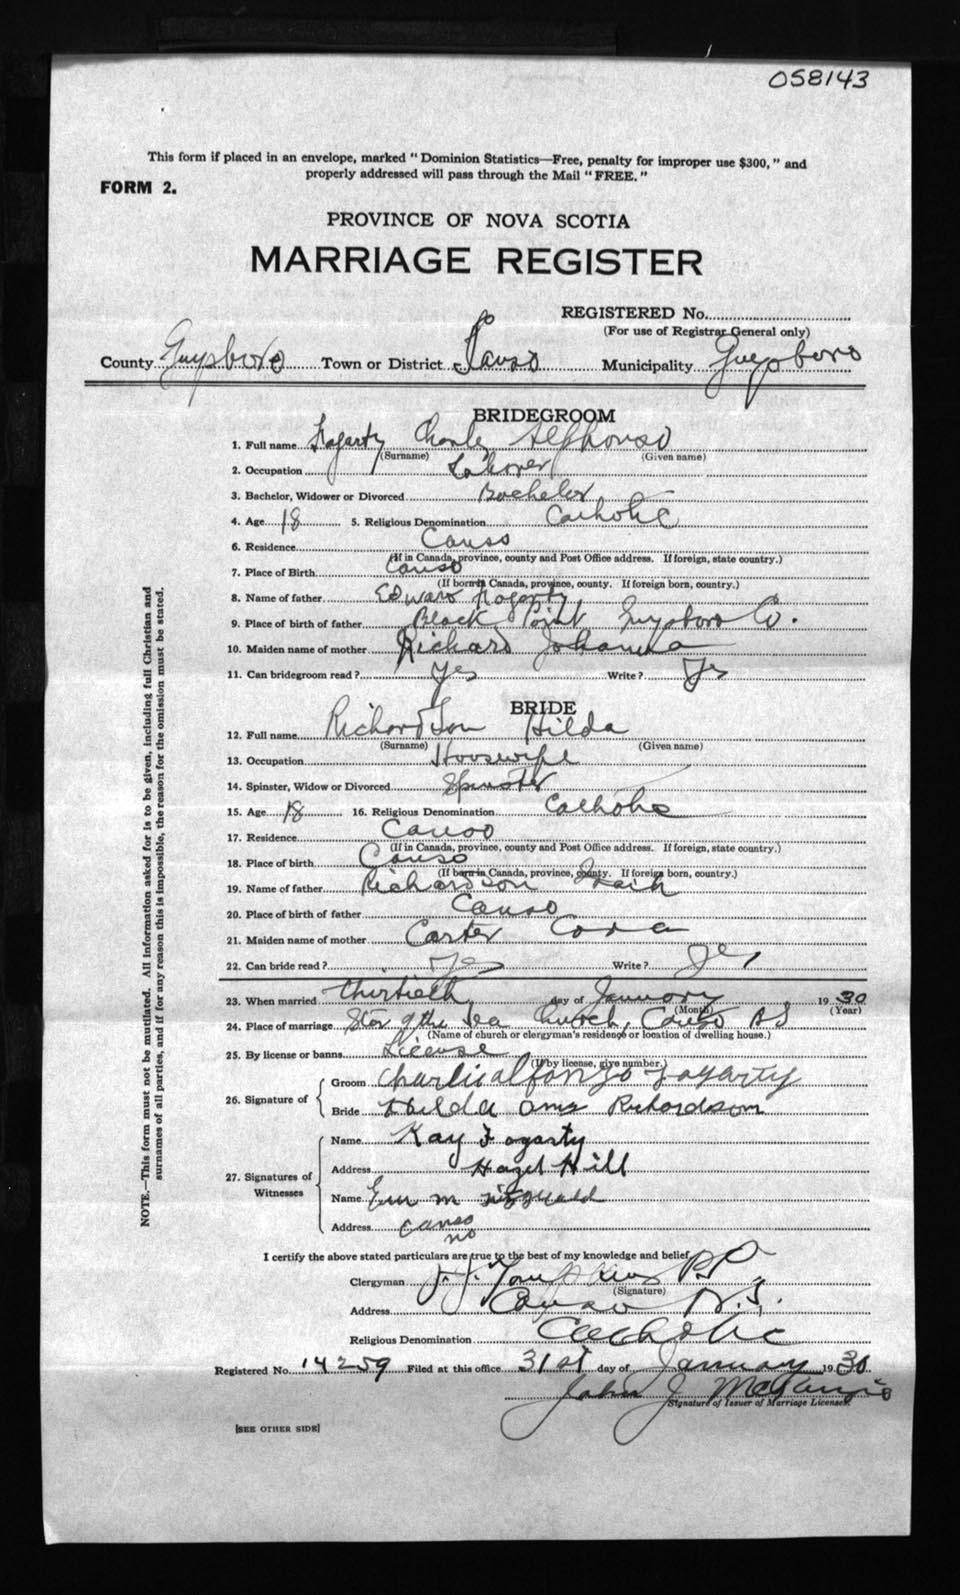 058143
This form if placed in an envelope, marked "Dominion Statistics—Free, penalty for improper use $300," and
properly addressed will pass through the Mail "FREE."
FORM 2.
PROVINCE OF NOVA SCOTIA
MARRIAGE REGISTER
REGISTERED No.
(For use of Registrar General only)
County Guysboro Town or District Canso Municipality Guysboro
BRIDEGROOM
1. Full name Fogarty Charles Alphonso
(Surname) (Given name)
2. Occupation Laborer
3. Bachelor, Widower or Divorced Bachelor
4. Age 18 5. Religious Denomination Catholic
6. Residence Canso
(If in Canada, province, county and Post Office address. If foreign, state country.)
7. Place of Birth Canso
(If born in Canada, province, county. If foreign born, country.)
8. Name of father Edward Fogarty
9. Place of birth of father Black Point Guysboro Co.
10. Maiden name of mother Richard Johanna
11. Can bridegroom read? Yes Write? Yes
BRIDE
12. Full name Richardson Hilda
(Surname) (Given name)
13. Occupation Housewife
14. Spinster, Widow or Divorced Spinster
15. Age 18 16. Religious Denomination Catholic
17. Residence Canso
(If in Canada, province, county and Post Office address. If foreign, state country.)
18. Place of birth Canso
(If born in Canada, province, county. If foreign born, country.)
19. Name of father Richardson
20. Place of birth of father Canso
21. Maiden name of mother Carter Cora
22. Can bride read? Yes Write? Yes
23. When married Thirtieth day of January 1930
(Month) (Year)
24. Place of marriage Star of the Sea Church, Canso NS
(Name of church or clergyman's residence or location of dwelling house.)
25. By license or banns License
(If by license, give number.)
26. Signature of
Groom Charlie alfonzo Fogarty
Bride Hilda Richardson
27. Signatures of Witnesses
Name Kay Fogarty
Address Hazel Hill
Name M
Address Canso
NS
I certify the above stated particulars are true to the best of my knowledge and belief
Clergyman J. J. Tompkins P.P.
(Signature)
Address Canso N.S.
Religious Denomination Catholic
Registered No. 14259 Filed at this office 31st day of January 1930
John J McKenzie
Signature of Issuer of Marriage Licenses.
[SEE OTHER SIDE]
NOTE.—This form must not be mutilated. All information asked for is to be given, including full Christian and
surnames of all parties, and if for any reason this is impossible, the reason for the omission must be stated.